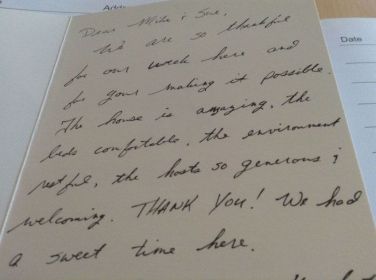 Dear Mike & Sue,
We are so thankful
for our week here and
for your making it possible.
The house is amazing, the
beds comfortable, the environment
restful, the hosts so generous &
welcoming. THANK YOU! We had
a sweet time here.
Date